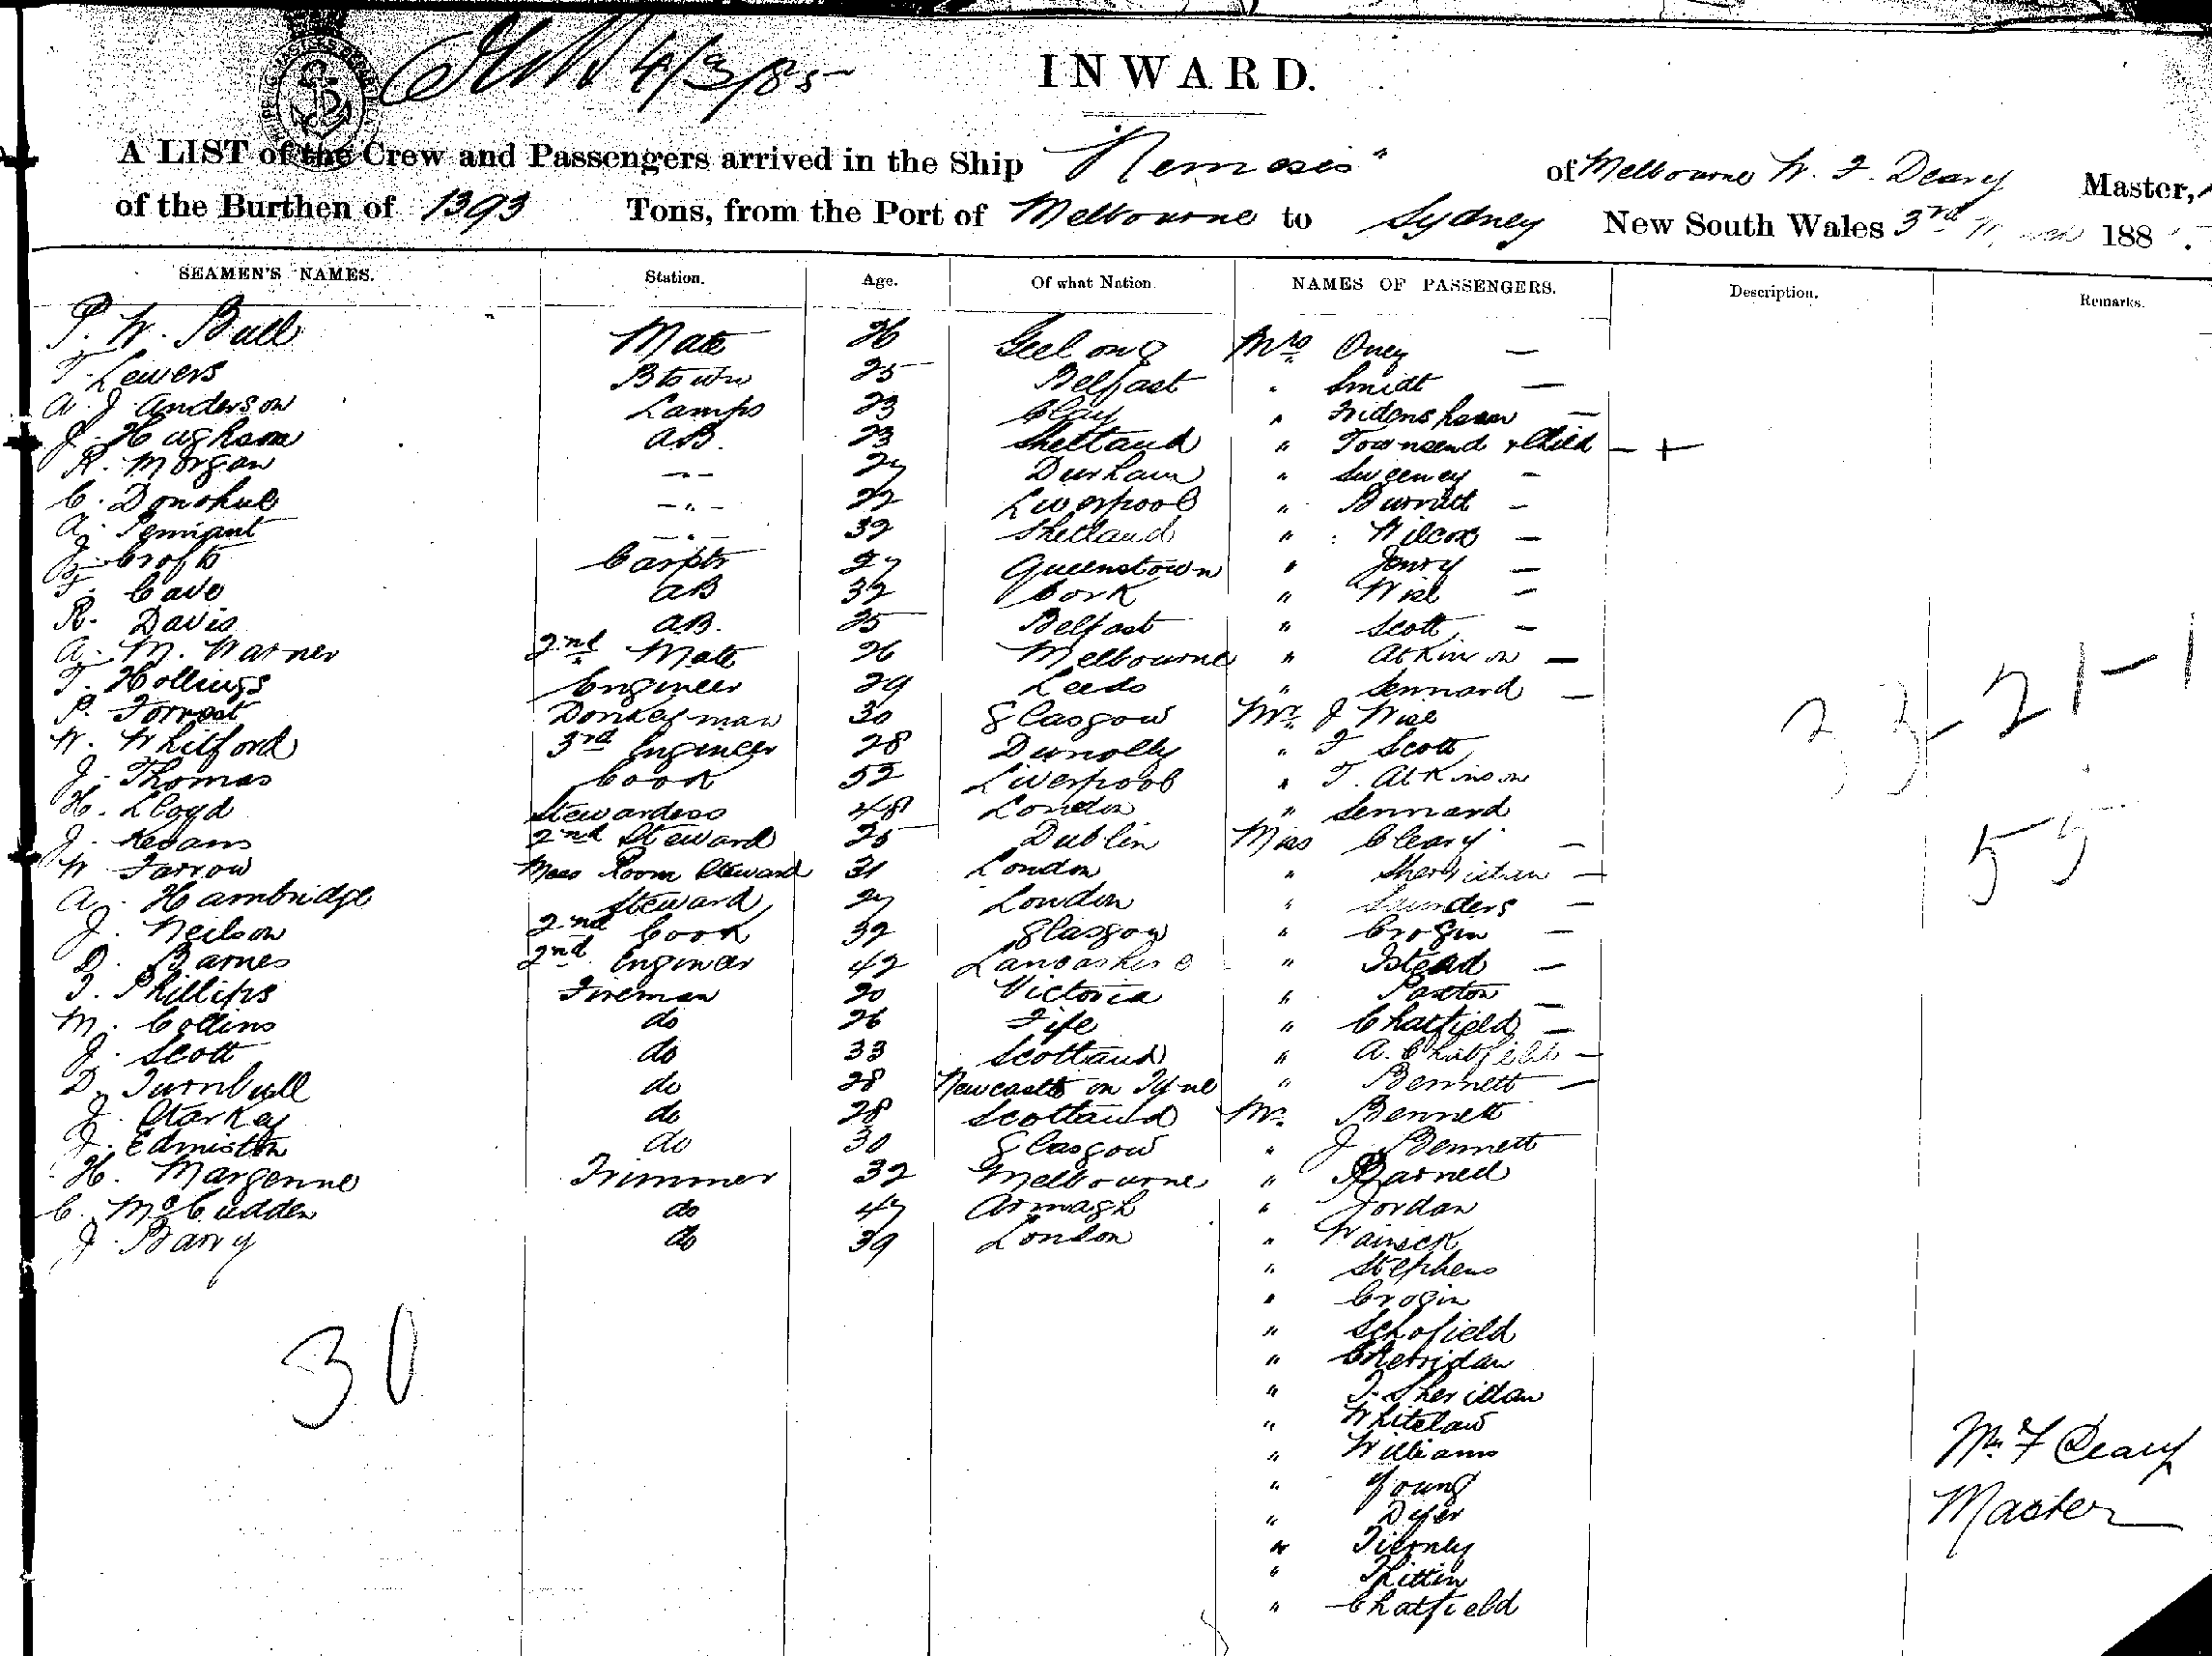 4/3/85
INWARD.
A LIST of the Crew and Passengers arrived in the Ship "Nemesis" of Melbourne W. F. Deary Master,
of the Burthen of 1393 Tons, from the Port of Melbourne to Sydney New South Wales 3rd March 188
SEAMEN'S NAMES. Station. Age. Of what Nation. NAMES OF PASSENGERS. Description. Remarks.
P. W. Bull Mate 26 Geelong Mrs Oney —
T. Lewers Btswn 25 Belfast " Smidt —
A. J. Anderson Lamps 23 Clay "
J. Hughson AB. 23 Shetland " Townsend & Child — +
R. Morgan -"- 27 Durham " Sweeney —
C. Donohue -"- 22 Liverpool " Burnett —
A. Tennant -"- 32 Shetland " Wilcox —
J. Crofts Carptr 27 Queenstown " Jenry —
F. Cave AB 32 Cork " Wise —
R. Davis AB. 25 Belfast " Scott —
A. M. Warner 2nd Mate 26 Melbourne " Atkinson —
T. Hollings Engineer 29 Leeds " Sennard —
P. Forrest Donkeyman 30 Glasgow Mr J Wise
W. Whitford 3rd Engineer 28 Dunolly " F Scott
J. Thomas Cook 52 Liverpool " T. Atkinson
H. Lloyd Stewardess 48 London " Sennard
J. Kevans 2nd Steward 25 Dublin Miss Cleary —
W Farrow Mess Room Steward 31 London " Sherridan —
A. Hambridge Steward 27 London " Saunders —
J. Neilson 2nd Cook 32 Glasgow " Crogin —
D. Barnes 2nd Engineer 42 Lancashire " Istead —
T. Phillips Fireman 20 Victoria " Paxton —
M. Collins do 26 Fife " Chatfield —
J. Scott do 33 Scotland " A. Chatfield —
D. Turnbull do 28 Newcastle on Tyne " Bennett —
J. Starkey do 28 Scotland Mr Bennett
J. Edmiston do 30 Glasgow " J. Bennett
H. Margenne Trimmer 32 Melbourne " Barned
C. McCudden do 47 Armagh " Jordan
J. Barry do 39 London " Wainsck
" Stephens
" Crogin
" Schofield
" Sherridan
" T. Sheridan
" Whitelaw
" Williams
" Young
" Dyer
" Tierney
" Thittin
" Chatfield
30
33 - 21 - 1
55
Wm F Deary
Master